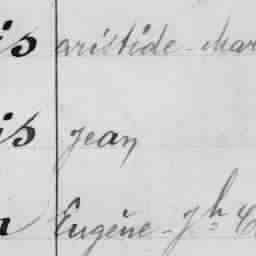 is aristide - Mar
is Jean
n Eugène - Jh C